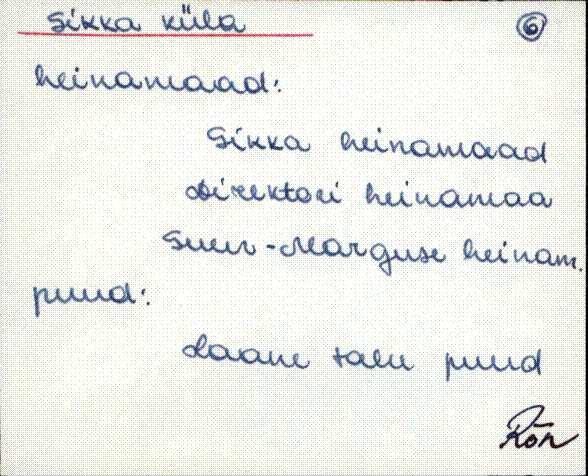 Sikka küla
6
heinamaad:
Sikka heinamaad
Direktori heinamaa
Suur-Marguse heinam.
puud:
Laane talu puud
Rõn